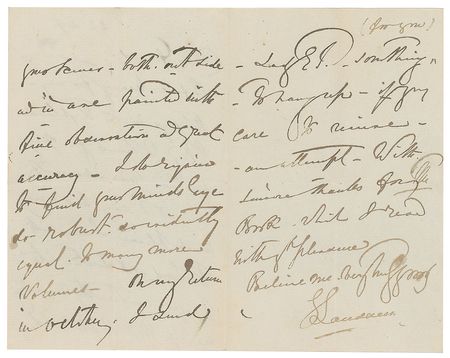 both outside
and in are painted with
fine observation and great
accuracy - I do rejoice
to find your minds eye
so robust. so evidently
equal. to many more
volumes - On my return
in October, I send
(for you)
- Lady E - something,
- To hang up - if you
care to receive -
- an attempt - With
sincere thanks for the
Book which I read
with gt pleasure
Believe me very truly yours